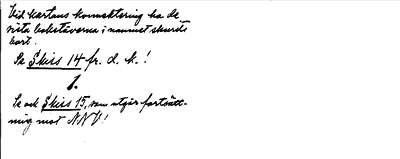 Vid kartans konnektering ha de
sista bokstäverna i namnet skurits
bort.
Se Skiss 14 fr. d. k.!
1.
Se ock Skiss 15, som utgör fortsätt-
ning mot NNV!